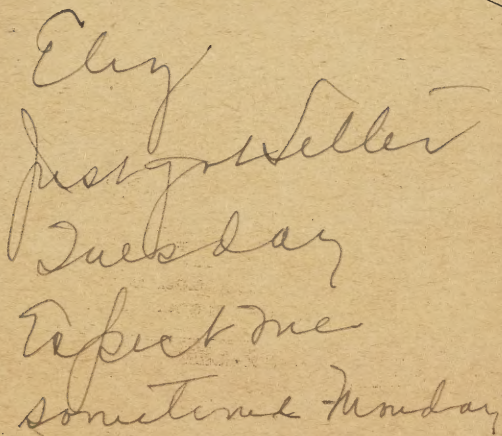 Eliz
Just got letter
Tuesday
Expect me
sometime Monday